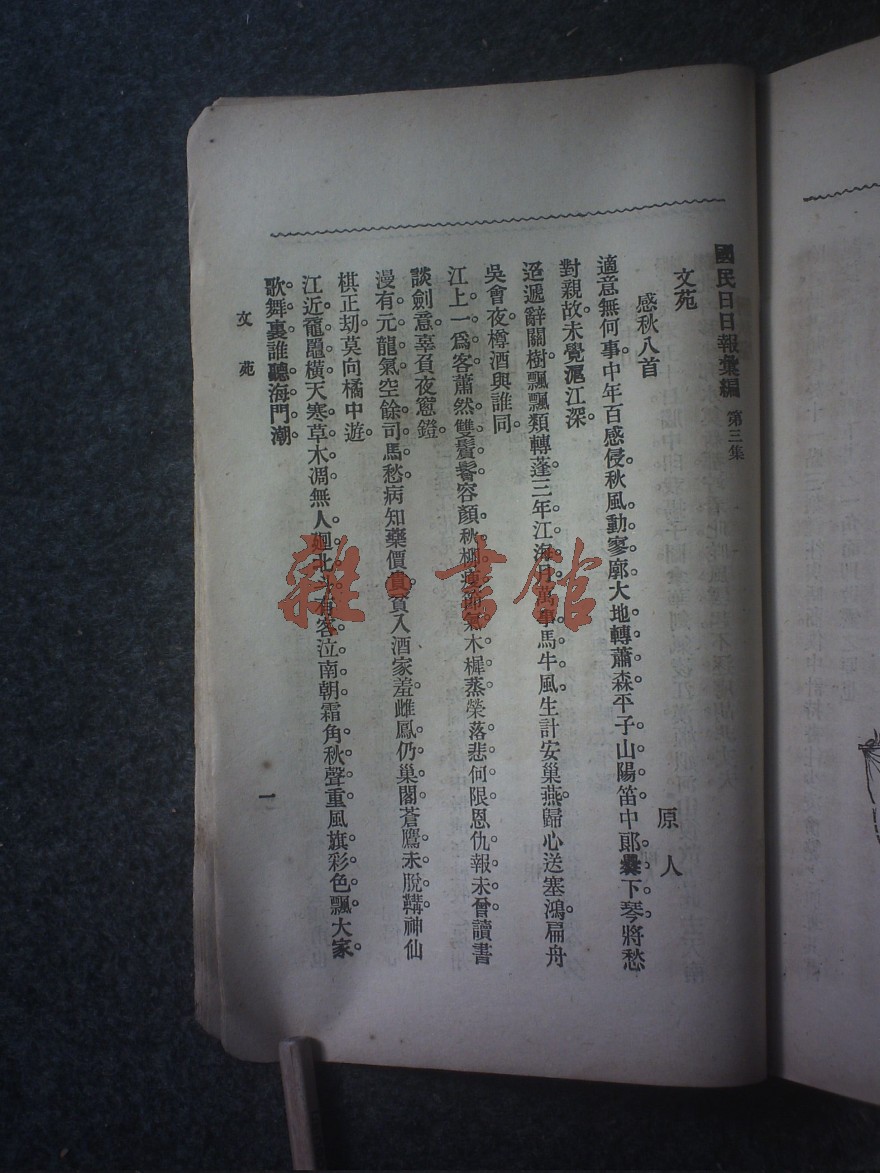 國民日日報彙編 第三集
文苑
感秋八首
原人
適意無何事中年百感侵秋風動寥廓大地轉蕭森平子山陽笛中郎爨下琴將愁
對親故未覺滬江深
迢遞辭關樹飄飄類轉蓬三年江海月萬事馬牛風生計安巢燕歸心送塞鴻扁舟
吳會夜樽酒與誰同
江上一爲客蕭然雙鬢鬙容顏秋氣木樨蒸榮落悲何限恩仇報未曾讀書
談劍意辜負夜窻鐙
漫有元龍氣空餘司馬愁病知藥價貴貧入酒家羞雌鳳仍巢閣蒼鷹未脫鞲神仙
棋正刼莫向橘中遊
江近黿鼉橫天寒草木凋無人廻北斗有客泣南朝霜角秋聲重風旗彩色飄大家
歌舞裏誰聽海門潮
文苑
一
雜·書館